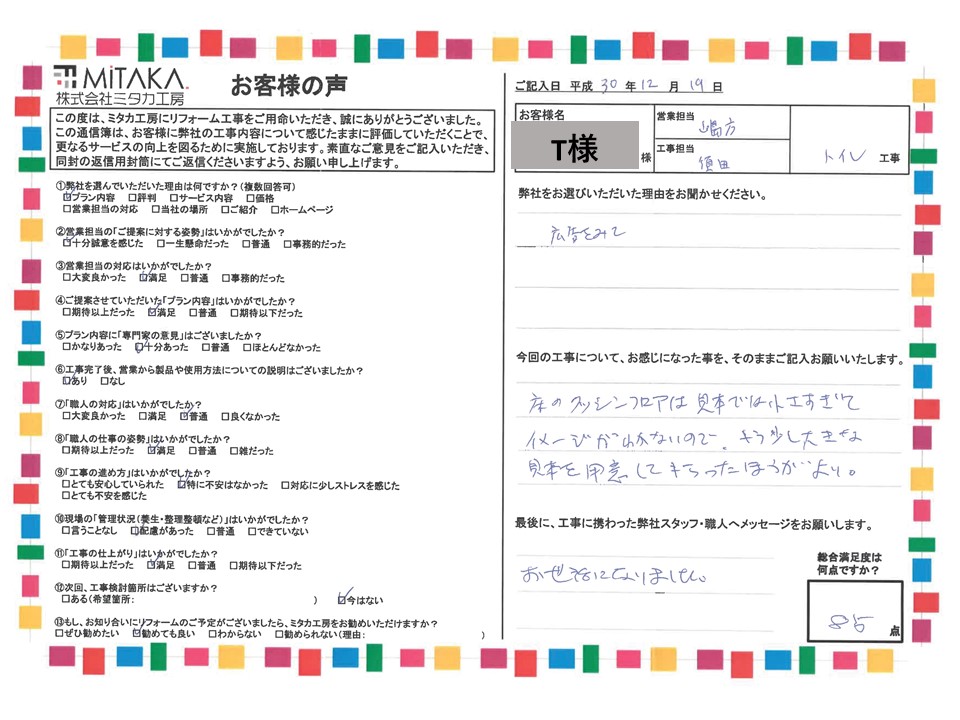 MiTAKA.
株式会社ミタカ工房
お客様の声
この度は、ミタカ工房にリフォーム工事をご用命いただき、誠にありがとうございました。
この通信簿は、お客様に弊社の工事内容について感じたままに評価していただくことで、
更なるサービスの向上を図るために実施しております。素直なご意見をご記入いただき、
同封の返信用封筒にてご返信くださいますよう、お願い申し上げます。
①弊社を選んでいただいた理由は何ですか?(複数回答可)
☑プラン内容 □評判 □サービス内容 □価格
□営業担当の対応 □当社の場所 □ご紹介 □ホームページ
②営業担当の「ご提案に対する姿勢」はいかがでしたか?
☑十分誠意を感じた □一生懸命だった □普通 □事務的だった
③営業担当の対応はいかがでしたか?
□大変良かった ☑満足 □普通 □事務的だった
④ご提案させていただいた「プラン内容」はいかがでしたか?
□期待以上だった ☑満足 □普通 □期待以下だった
⑤プラン内容に「専門家の意見」はございましたか?
□かなりあった ☑十分あった □普通 □ほとんどなかった
⑥工事完了後、営業から製品や使用方法についての説明はございましたか?
☑あり □なし
⑦「職人の対応」はいかがでしたか?
□大変良かった □満足 ☑普通 □良くなかった
⑧「職人の仕事の姿勢」はいかがでしたか?
□期待以上だった ☑満足 □普通 □雑だった
⑨「工事の進め方」はいかがでしたか?
□とても安心していられた ☑特に不安はなかった □対応に少しストレスを感じた
□とても不安を感じた
⑩現場の「管理状況(養生・整理整頓など)」はいかがでしたか?
□言うことなし ☑配慮があった □普通 □できていない
⑪「工事の仕上がり」はいかがでしたか?
□期待以上だった ☑満足 □普通 □期待以下だった
⑫次回、工事検討箇所はございますか?
□ある(希望箇所: ) ☑今はない
⑬もし、お知り合いにリフォームのご予定がございましたら、ミタカ工房をお勧めいただけますか?
□ぜひ勧めたい ☑勧めても良い □わからない □勧められない(理由: )
ご記入日 平成 30 年 12 月 19 日
お客様名
T様 様
営業担当
工事担当
須田
トイレ 工事
弊社をお選びいただいた理由をお聞かせください。
広告をみて
今回の工事について、お感じになった事を、そのままご記入お願いいたします。
床のクッションフロアは見本では小さすぎて
イメージがわかないので、もう少し大きな
見本を用意してもらったほうがよい。
最後に、工事に携わった弊社スタッフ・職人へメッセージをお願いします。
お世話になりました。
総合満足度は
何点ですか?
85 点